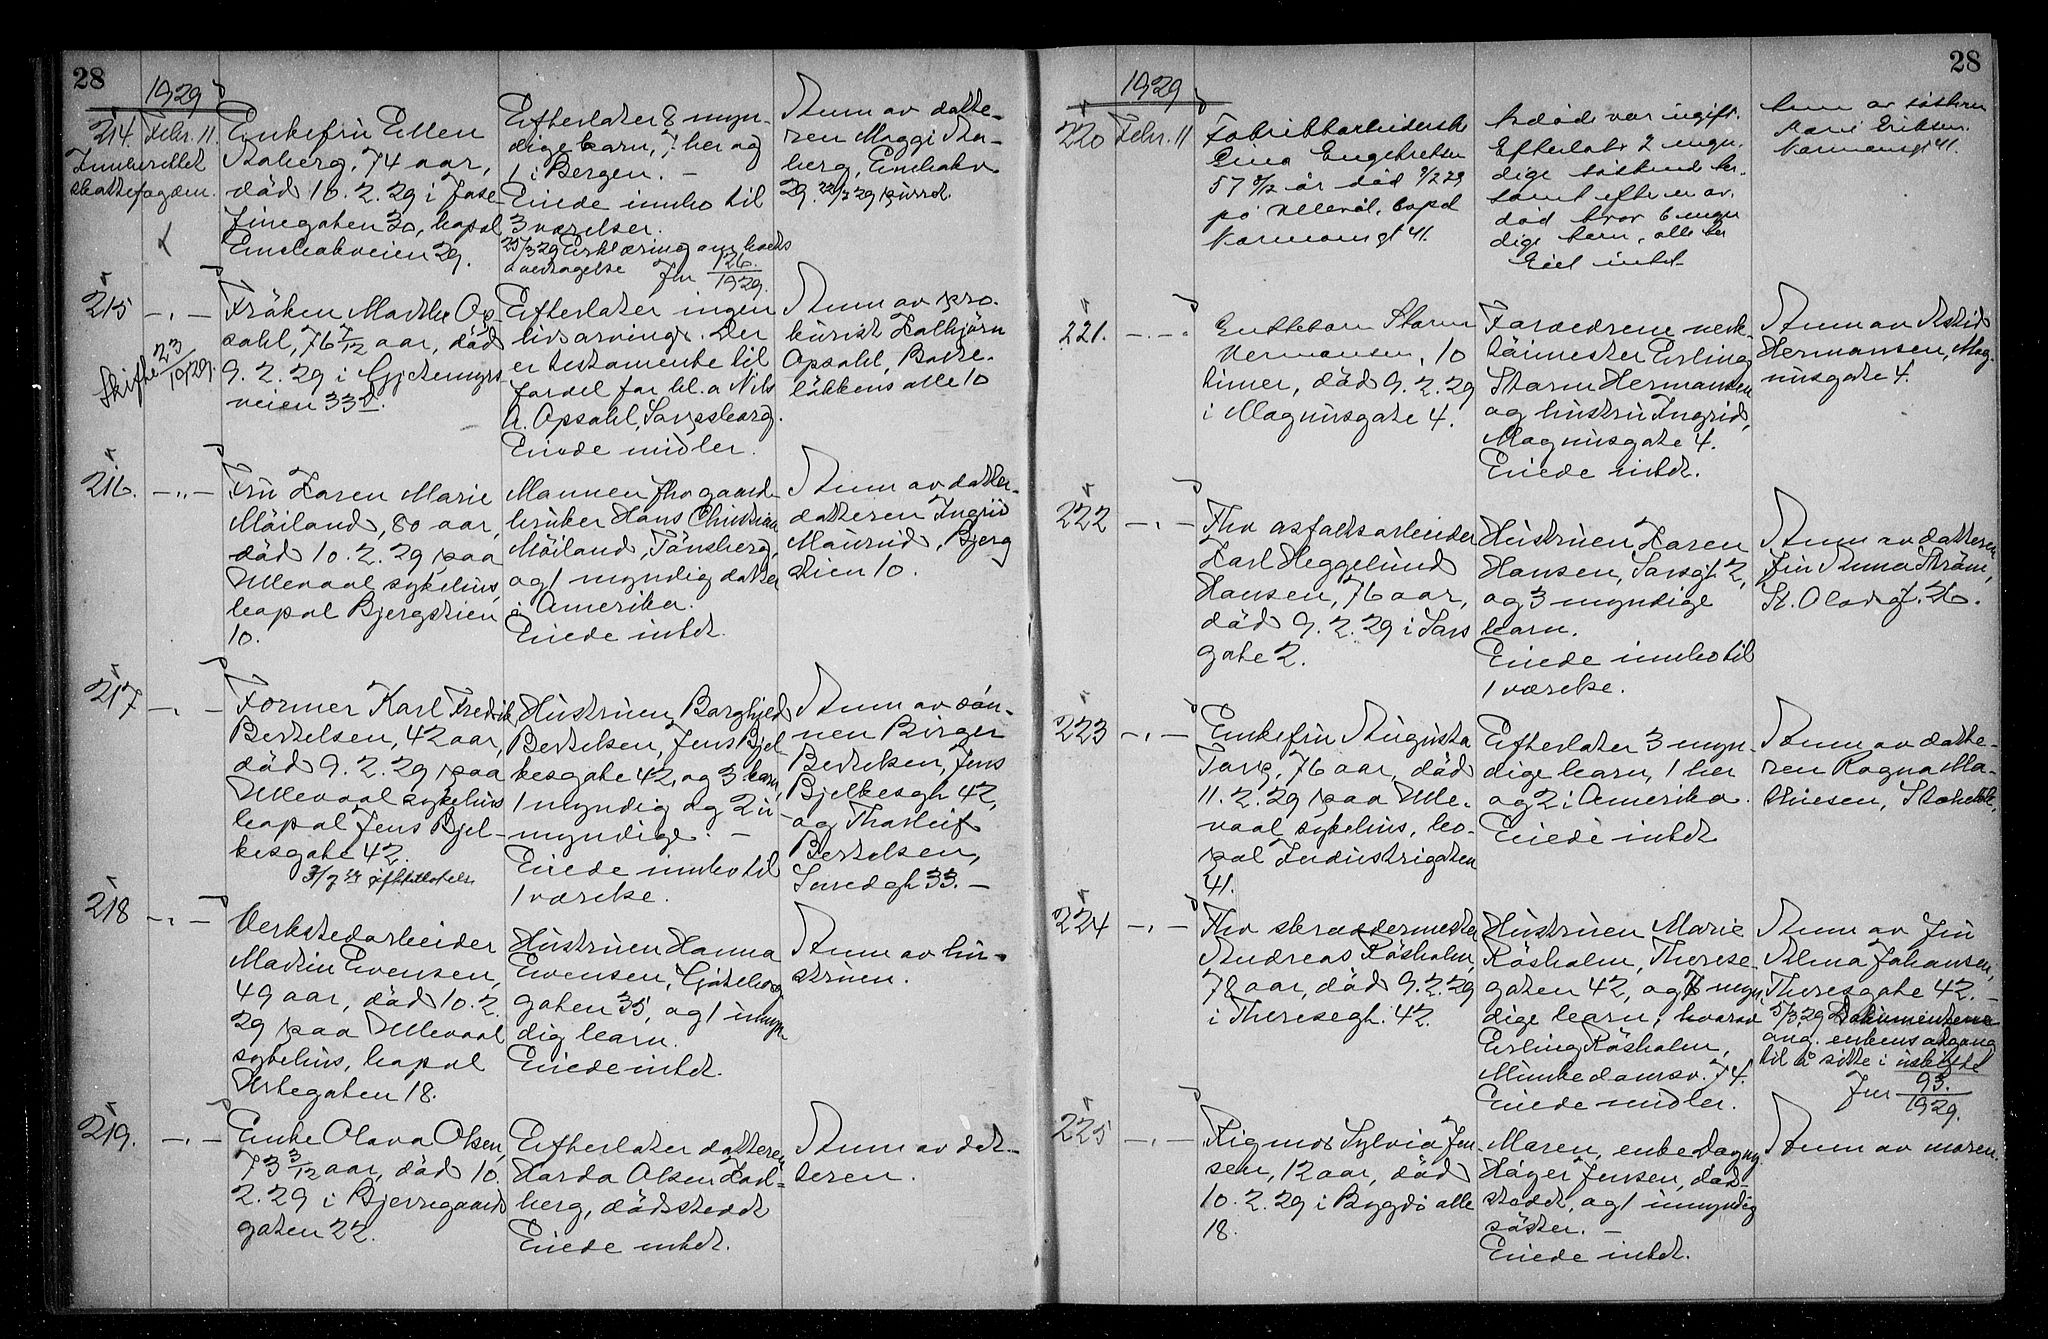 28
1929
214. Febr. 11.
Innberettet
skattefogden.
Enkefru Ellen
Raberg, 74 aar,
död 10.2.29 i Jose-
finegaten 30, bopæl
Ensebakveien 29.
Efterlater 8 myn-
dige barn, 7 her og
1 i Bergen. –
Eiede innbo til
3 værelser.
25/3 29 Erklæring om boets
overtagelse Jnr 126./1929.
Anm av datte-
ren Maggi Ra-
berg, Ensebakv
29. 22/3 29 purret.
215 – „ –
Skifte 23/1929.
Fröken Marthe Op-
sahl, 76 7/12 aar, död
9.2.29 i Gjetemyrs-
veien 33d.
Efterlater ingen
livsarvinger. Der
er testamente til
fordel for bl.a Nils
A. Opsahl, Sarpsborg.
Eiede midler.
Anm av pro-
kurist Halbjörn
Opsahl,
lökkens alle 10
216. – „ –
Fru Karen Marie
Möiland, 80 aar,
död 10.2.29 paa
Ullevaal sykehus,
bopæl Bjergstien
10.
Mannen fhv gaard-
bruker Hans Christian
Möiland, Tönsberg,
og 1 myndig datter
i Amerika.
Eiede intet.
Anm av datter-
datteren Ingrid
Maurud, Bjerg
stien 10.
217 – „ –
Former Karl Fredrik
Bertelsen, 42 aar,
död 9.2.29 paa
Ullevaal sykehus
bopæl Jens Bjel-
kesgate 42.
Hustruen Borghild
Bertelsen, Jens Bjel
kesgate 42, og 3 barn,
1 myndig og 2 u-
myndige. –
Eiede innbo til
1 værelse.
Anm av søn-
nen Birger
Bertelsen, Jens
Bjelkesgt 42,
og Thorleif
Bertelsen,
33. –
218 – „ –
Verkstedarbeider
Martin Evensen,
49 aar, död 10.2.
29 paa Ullevaal
sykehus, bopæl
Urtegaten 18.
Hustruen Hanna
Evensen, Göteborg
gaten 35, og 1 umyn
dig barn.
Eiede intet.
Anm av hu-
struen.
219. – „ –
Enke Olava Olsen,
73 3/12 aar, död 10.
2.29 i Bjerregaards
gaten 22.
Efterlater datteren
Harda Olsen
berg, dödsstedet
Eiede intet.
Anm av dat-
teren.
28
1929
220 Febr. 11
Fabrikkarbeiderske
Lina Engebretsen
57 8/12 år död 9/2 29
på Ullevål, bopel
Normannsgt 41.
Avdöde var ugift.
Efterlater 2 myn-
dige söskend her
samt efter en av-
död bror 6 myn
dige barn, alle her
Eiet intet
Anm av söstern
Marie Eriksen.
Normannsgt 41.
221. – „ –
Guttebarn Storm
Hermansen, 10
timer, död 9.2.29
i Magnusgate 4.
Forældrene verk-
töimester Erling
Storm Hermansen
og hustru Ingrid,
Magnusgate 4.
Eiede intet.
Anm av Astrid
Hermansen, Mag-
nusgate 4.
222 – „ –
Fhv asfaltsarbeider
Karl Heggelund
Hansen, 76 aar,
död 9.2.29 i Sars
gate 2.
Hustruen Karen
Hansen, Sarsgt 2,
og 3 myndige
barn.
Eiede innbo til
1 værelse.
Anm av datteren
fru Anna Ström,
St. Olavsgt. 26.
223 – „ –
Enkefru Augusta
Torp, 76 aar, död
11.2.29 paa Ulle-
vaal sykehus, bo-
pæl Industrigaten
41.
Efterlater 3 myn-
dige barn, 1 her
og 2 i Amerika.
Eiede intet
Anm av datte-
ren Ragna Ma-
thiesen,
224 – „ –
Fhv skræddermester
Andreas Rösholm,
78 aar, död 9.2.29
i Theresegt. 42.
Hustruen Marie
Rösholm, Therese-
gaten 42, og 8 myn-
dige barn, hvorav
Erling Rösholm,
Munkedamsv. 74.
Eiede midler.
Anm av fru
Alma Johansen,
Theresgate 42. –
5/3.29 Dokumentene
ang. enkens adgang
til å sitte i uskiftet
Jnr 93./1929.
225 – „ –
Rigmor Sylvia Jen
sen, 12 aar, död
10.2.29 i Bygdö alle
18.
Moren, enke Dagny
Höger Jensen, död-
stedet, og 1 umyndig
söster. –
Eiede intet.
Anm av moren.